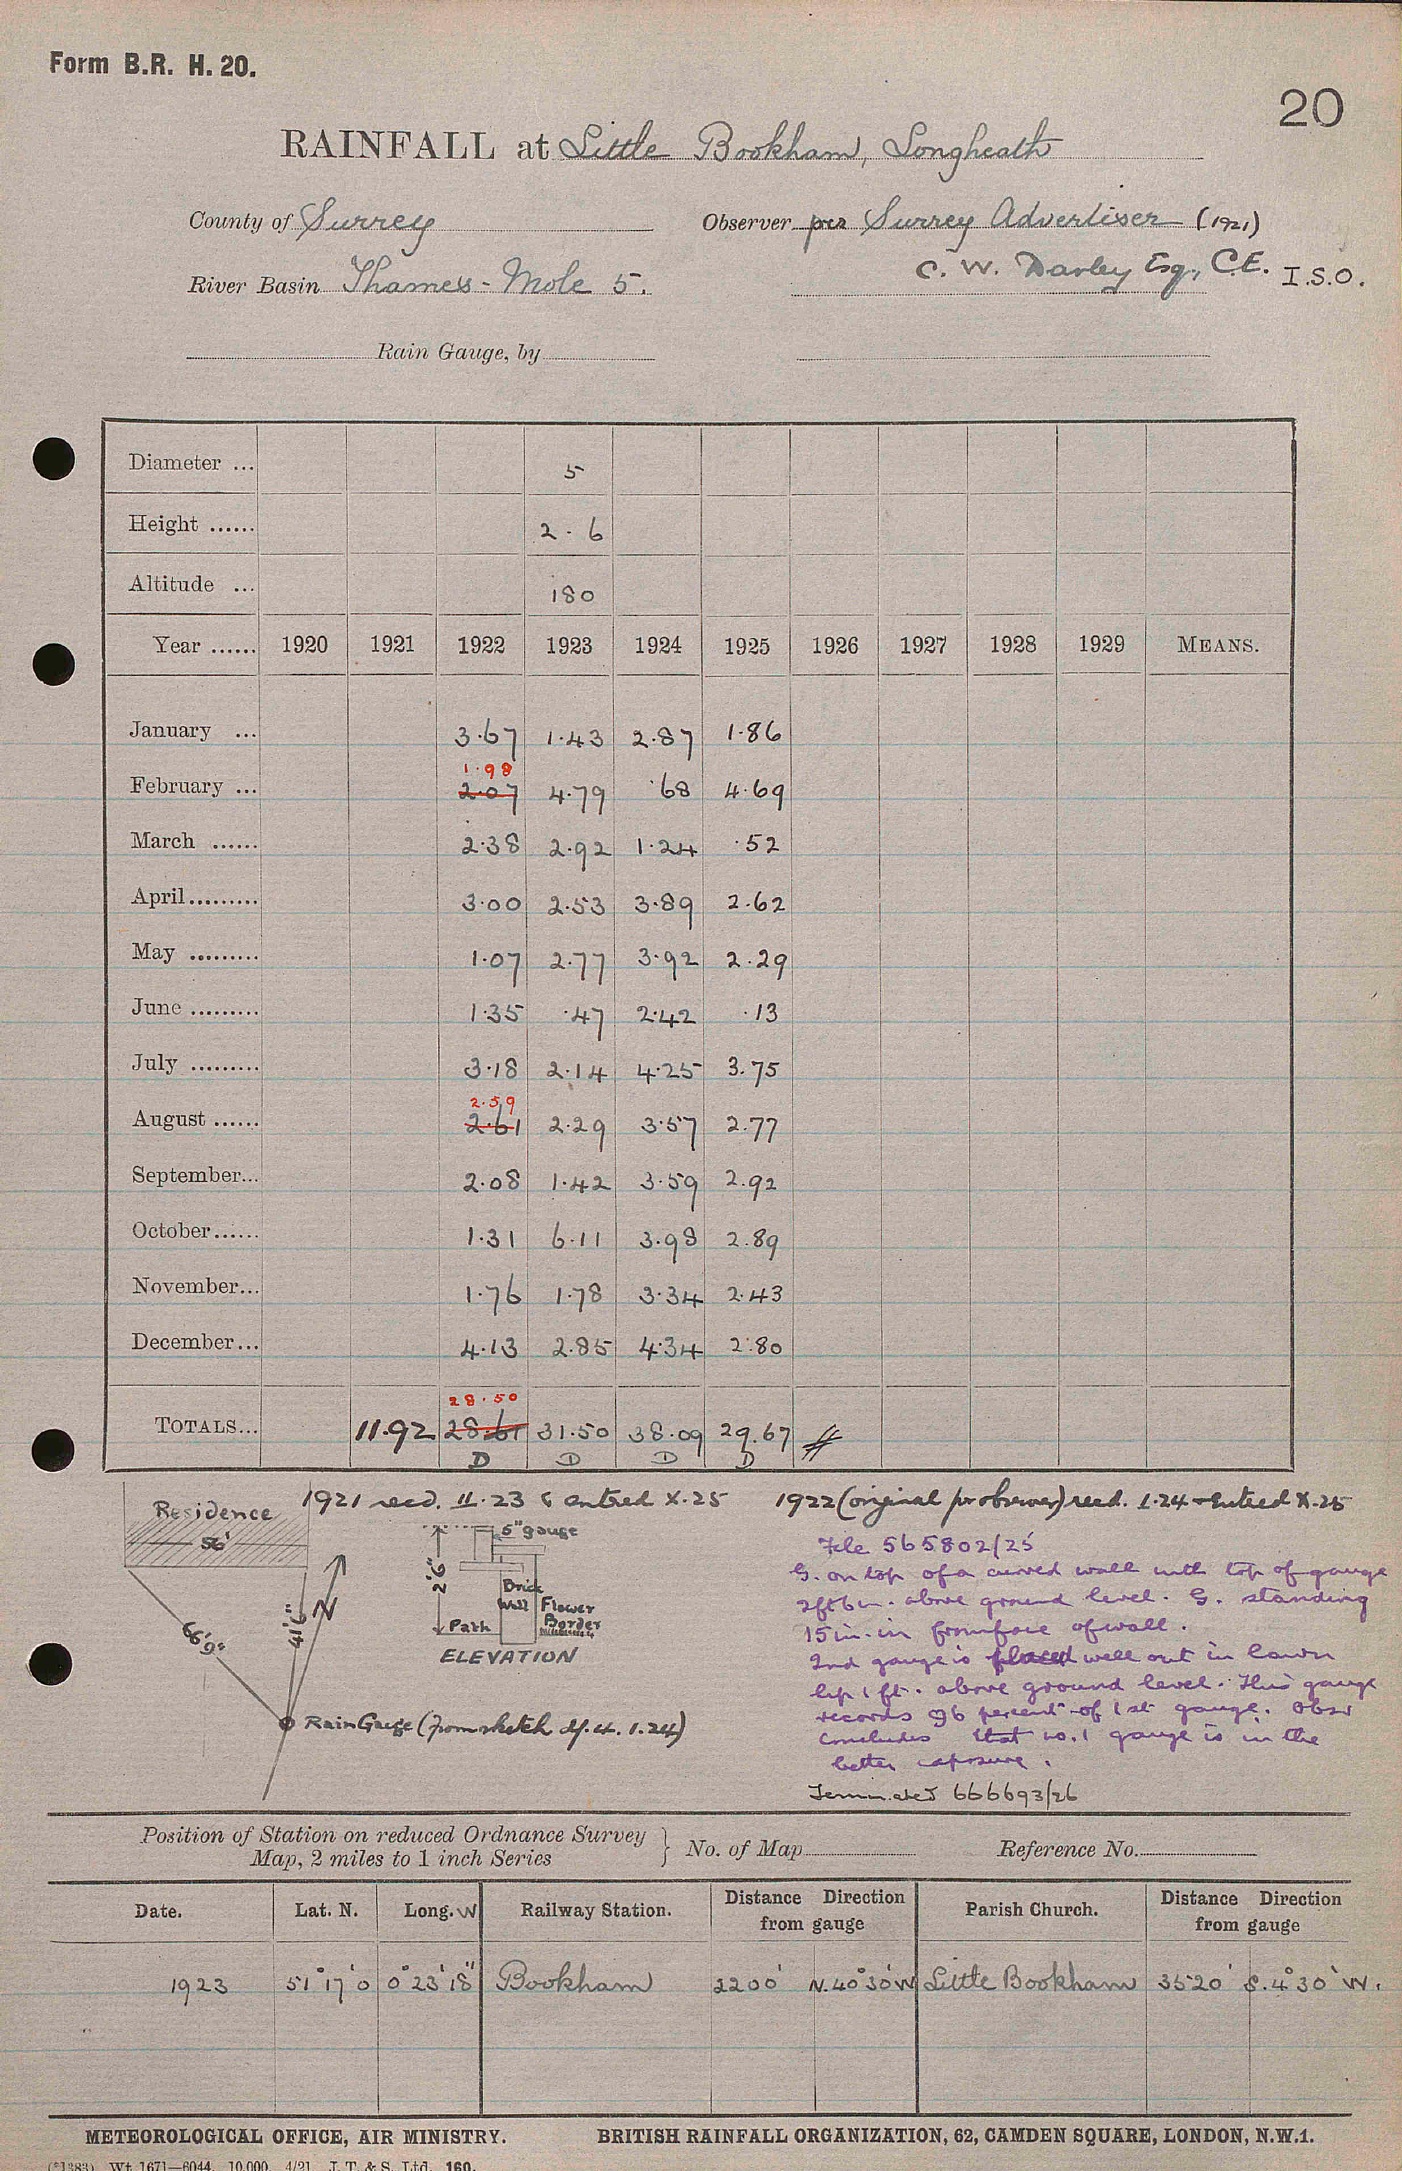 Form B.R. H. 20.
20
RAINFALL at Little Bookham, Longheath
County of Surrey Observer per Surrey Advertiser (1921)
C. W. Darley Esq, C.E. I.S.O.
River Basin Thames - Mole 5.
Rain Gauge, by
Diameter ... 5
Height ...... 2 - 6
Altitude ... 180
Year ...... 1920 1921 1922 1923 1924 1925 1926 1927 1928 1929 MEANS.
January ... 3.67 1.43 2.87 1.86
1.98
February ... 2.07 4.79 .68 4.69
March ...... 2.38 2.92 1.24 .52
April ......... 3.00 2.53 3.89 2.62
May ......... 1.07 2.77 3.92 2.29
June ......... 1.35 .47 2.42 .13
July ......... 3.18 2.14 4.25 3.75
2.59
August ...... 2.61 2.29 3.57 2.77
September... 2.08 1.42 3.59 2.92
October...... 1.31 6.11 3.98 2.89
November... 1.76 1.78 3.34 2.43
December... 4.13 2.85 4.34 2.80
28.50
TOTALS... 11.92 28.61 31.50 38.09 29.67
D D D D
1921 recd. II.23 & entred X.25
1922 (original pr observer) recd. I.24 & entred X.25
Residence
56'
66'9"
41'6"
N
5" gauge
2'6"
Brick Wall
Flower Border
Path
ELEVATION
Rain Gauge (from sketch df. 4. 1.24)
File 565802/25
G. on top of a curved wall with top of gauge
2ft 6in. above ground level. G. standing
15 in. in from face of wall.
2nd gauge is placed well out in lawn
lip 1 ft. above ground level. This gauge
records 96 percent of 1st gauge. Obsr
concludes that no. 1 gauge is in the
better exposure.
Terminated 666693/26
Position of Station on reduced Ordnance Survey
Map, 2 miles to 1 inch Series } No. of Map Reference No.
Date. Lat. N. Long. W Railway Station. Distance Direction from gauge Parish Church. Distance Direction from gauge
1923 51°17'0 0°23'18" Bookham 2200' N.40°30'W Little Bookham 3520' S.4°30'W.
METEOROLOGICAL OFFICE, AIR MINISTRY. BRITISH RAINFALL ORGANIZATION, 62, CAMDEN SQUARE, LONDON, N.W.1.
(*1383) Wt. 1671—6044. 10,000. 4/21. J. T. & S. Ltd. 160.